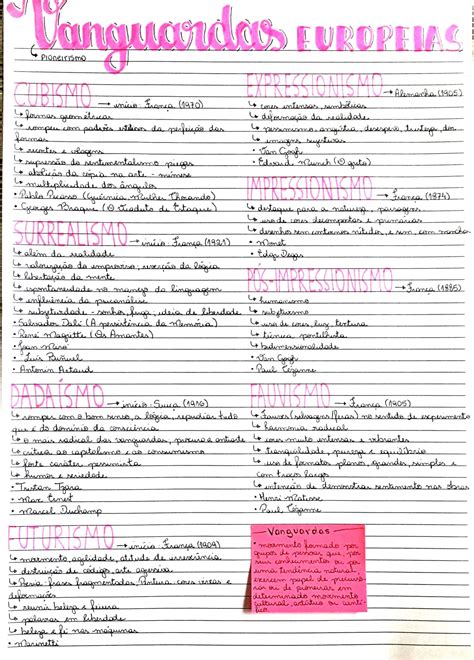 Vanguardas EUROPEIAS
↳ PIONEIRISMO
CUBISMO → início: França (1970)
↳ formas geométricas
↳ romper com padrões da perfeição das
formas
↳ recortes e colagens
↳ supressão do sentimentalismo
↳ abolição da cópia na arte - mimese
↳ multiplicidade dos ângulos
• Pablo Picasso (Guernica Mulher Chorando)
• Georges Braque (O Viaduto de Estaque)
SURREALISMO → início: França (1921)
↳ além da realidade
↳ valorização do impreciso, rejeição da lógica
↳ libertação da mente
↳ espontaneidade no manejo da linguagem
↳ influência da psicanálise
↳ subjetividade - sonho, fuga, ideia de liberdade
• Salvador Dalí (A persistência da Memória)
• René Magritte (Os Amantes)
• Joan Miró
• Luis Buñuel
• Antonin Artaud
DADAÍSMO → início: Suíça (1916)
↳ romper com o bom senso, a lógica, repudiar tudo
que é do domínio da consciência.
↳ o mais radical das vanguardas, procura a
↳ crítica ao capitalismo e ao consumismo
↳ forte caráter pessimista
↳ humor e seriedade
• Tristan Tzara
• Max Ernst
• Marcel Duchamp
FUTURISMO → início: França (1909)
↳ movimento, agilidade, atitude de
↳ destruição do código, arte agressiva
↳ Poesia - frases fragmentadas, Pintura - cores vivas e
deformações
↳ reunir beleza e fúria
↳ palavras em liberdade
↳ beleza e fé nas máquinas
• Marinetti
EXPRESSIONISMO → Alemanha (1905)
↳ cores intensas, simbólicas
↳ deformação da realidade
↳ pessimismo, angústia, desespero, tristeza, dor
↳ imagens sujestivas
• Van Gogh
• Edvard Munch (O grito)
IMPRESSIONISMO → França (1874)
↳ destaque para a natureza, paisagens
↳ uso de cores decompostas e primárias
↳ desenhos sem contornos nítidos, e sem, com manchas
• Monet
• Edgar Degas
PÓS-IMPRESSIONISMO → França (1885)
↳ humanismo
↳ subjetivismo
↳ uso de cores, luz, textura
↳ técnica, pontilhista
↳ bidimensionalidade
• Van Gogh
• Paul Cézanne
FAUVISMO → França (1905)
↳ Fauves (selvagens/feras) no sentido de experimento
↳ harmonia radical
↳ cores muito intensas e vibrantes
↳ tranquilidade, pureza e equilíbrio
↳ uso de formatos planos, grandes, simples e
com traços largos
↳ intenção de demonstrar sentimento nas obras
• Henri Matisse
• Paul Cézanne
- Vanguardas -
• movimento formado por
grupos de pessoas que, por
seus conhecimentos ou por
uma tendência natural,
exercem papel de precurso-
ras ou de pioneiras em
determinado movimento
cultural, artístico ou cientí-
fico.